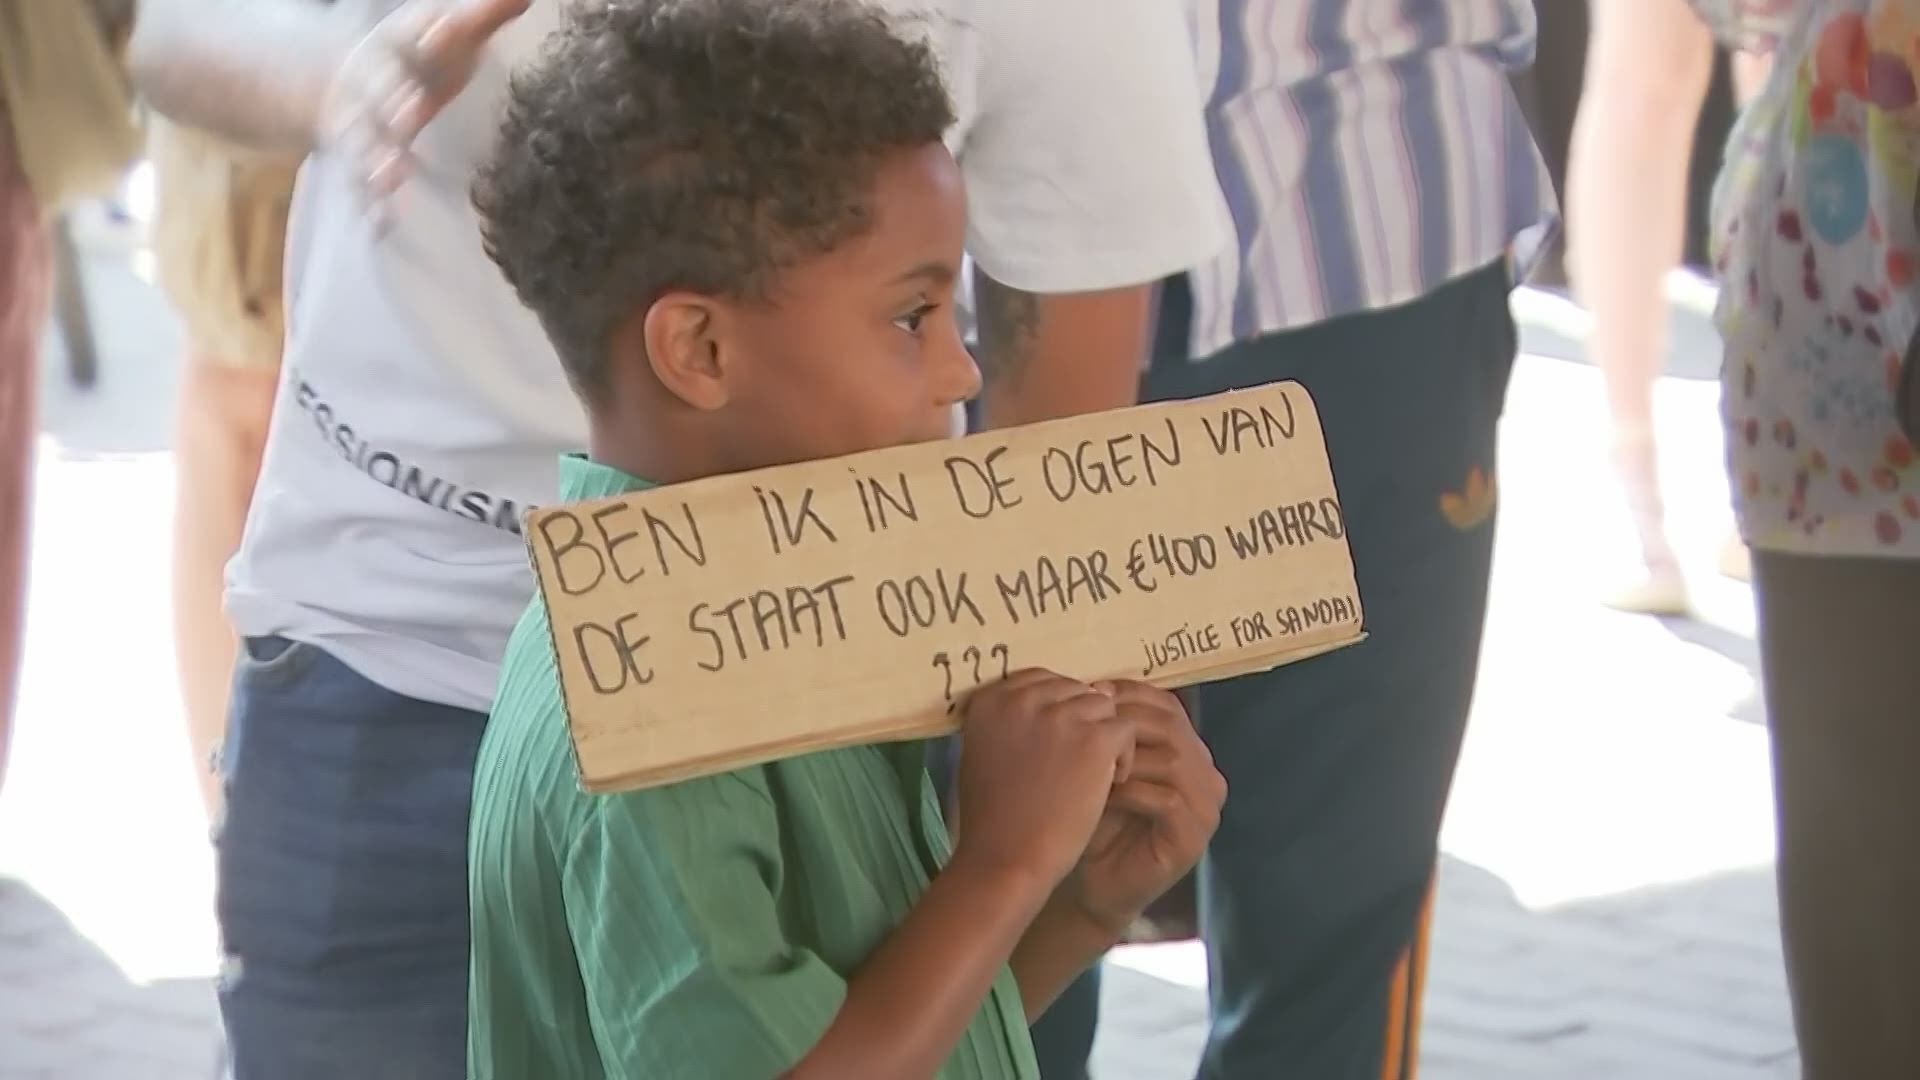 BEN iK iN DE OGEN VAN
DE STAAT OOK MAAR €400 WAARD
???
jUSTiCE FOR SANDA!
ESSIONISM